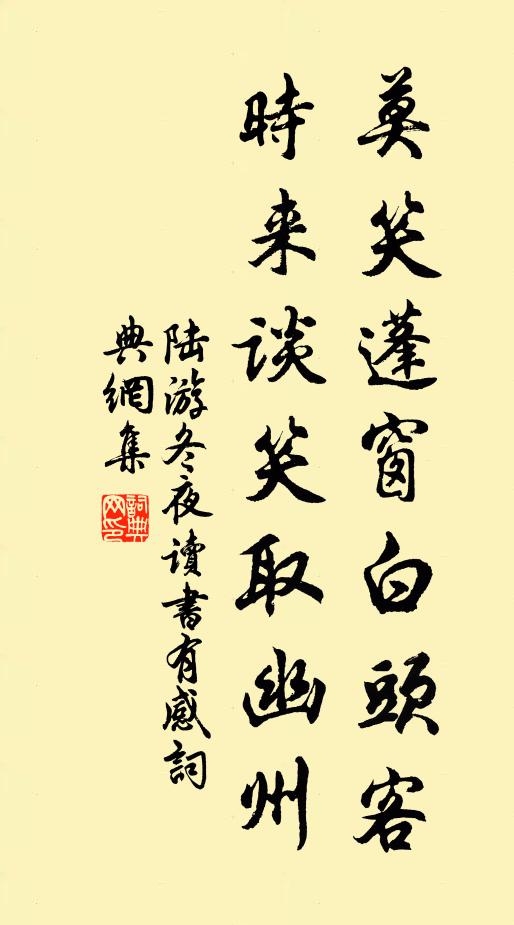 莫笑蓬窗白頭客
時来談笑取幽州
陆游冬夜讀書有感詞
典網集
詞典
网印